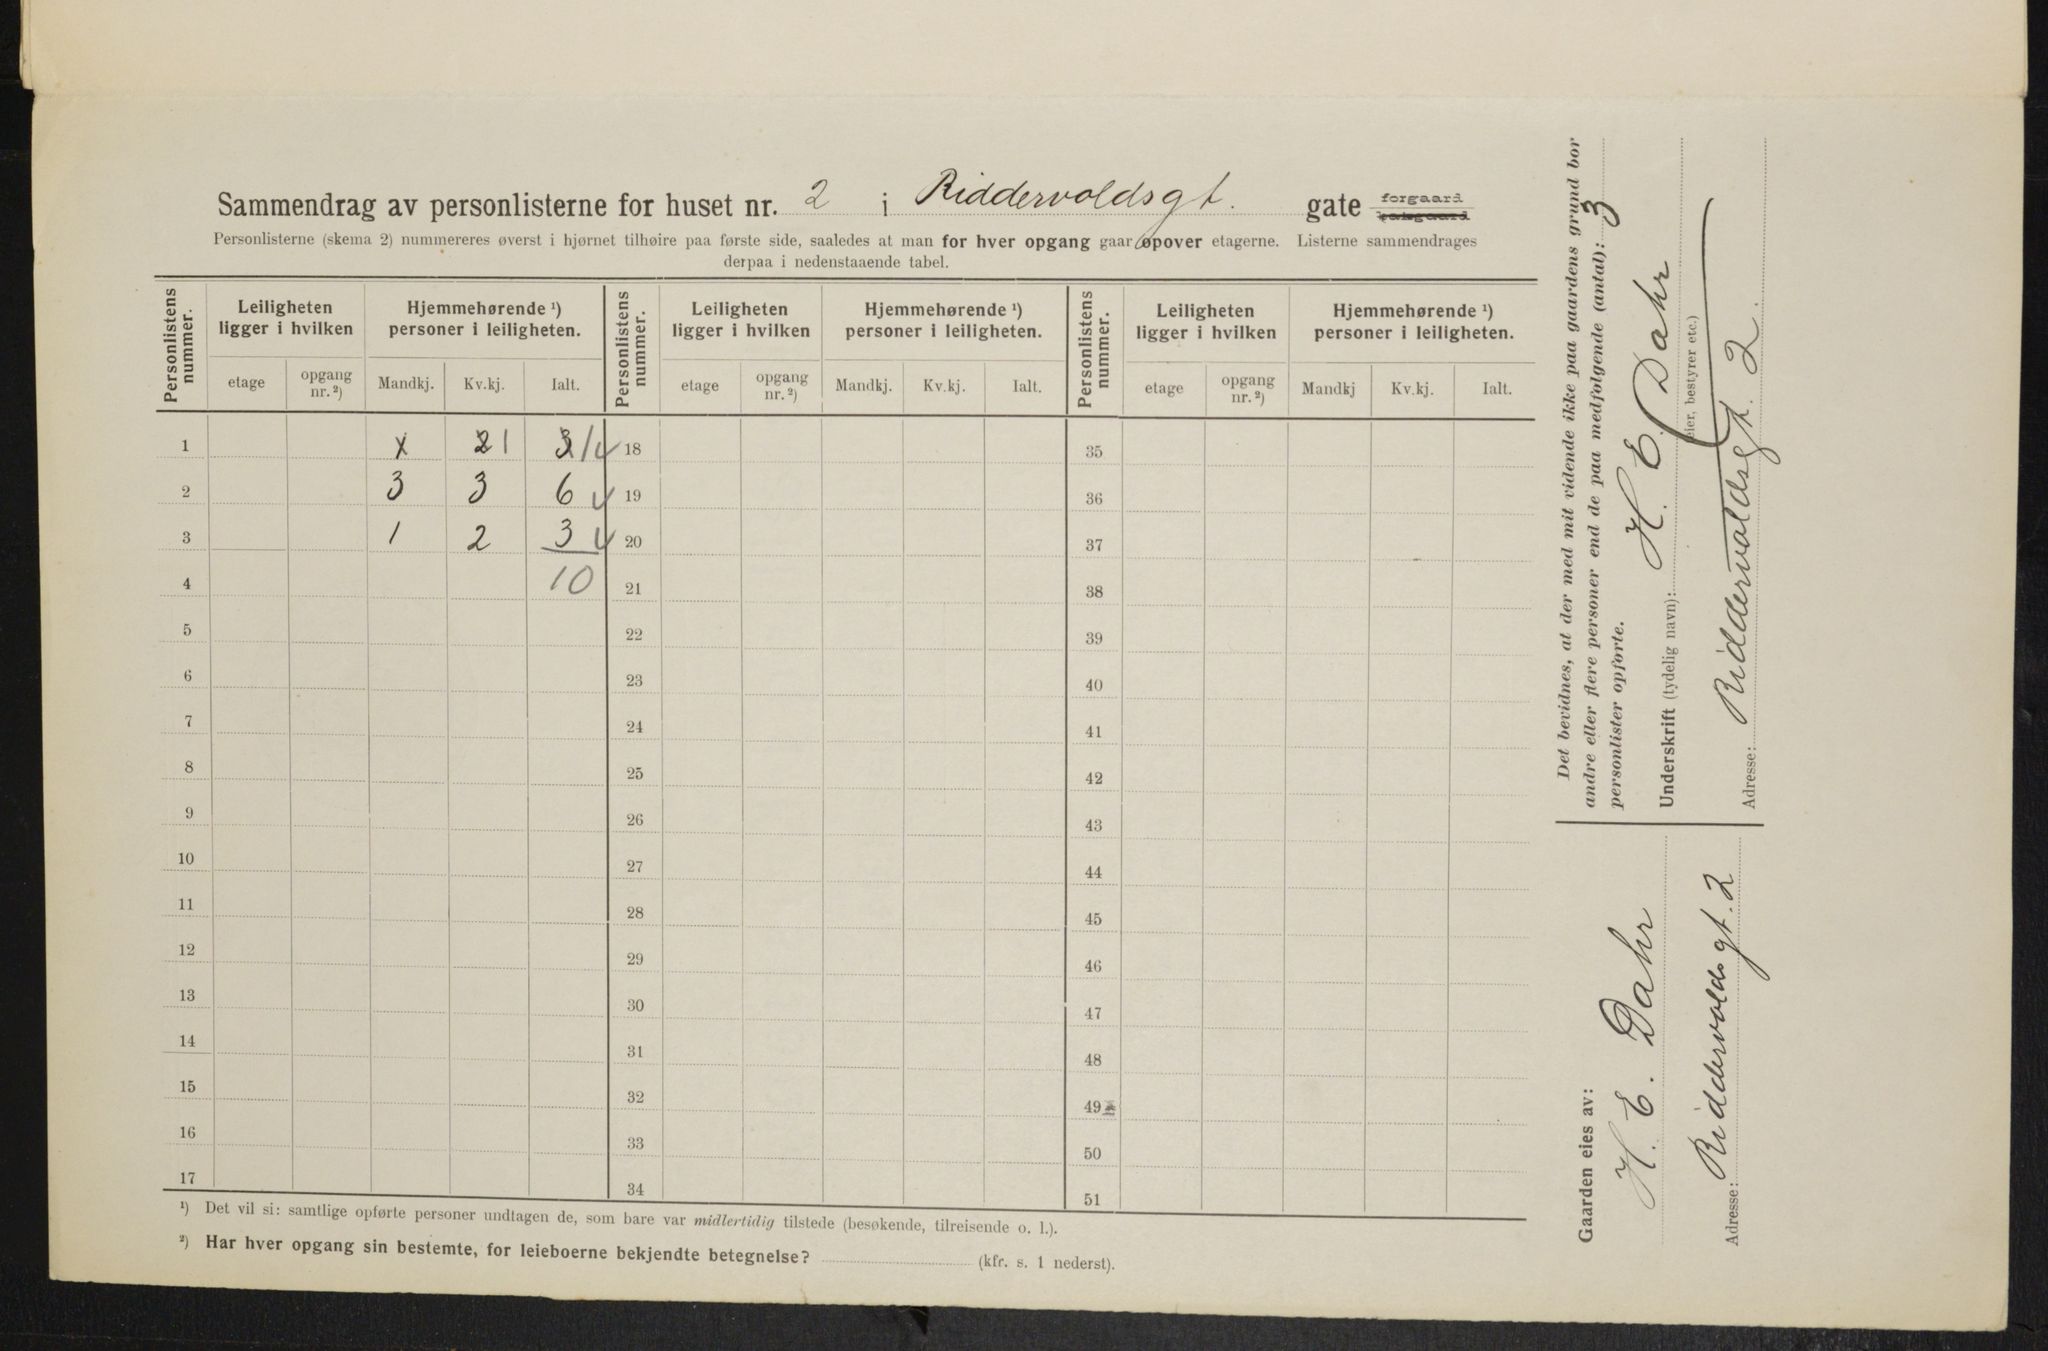 Sammendrag av personlisterne for huset nr. 2 i Riddervoldsgt. gate forgaard bakgaard
Personlisterne (skema 2) nummereres øverst i hjørnet tilhøire paa første side, saaledes at man for hver opgang gaar opover etagerne. Listerne sammendrages
derpaa i nedenstaaende tabel.
Personlistens nummer. Leiligheten ligger i hvilken Hjemmehørende ¹) personer i leiligheten. Personlistens nummer. Leiligheten ligger i hvilken Hjemmehørende ¹) personer i leiligheten. Personlistens nummer. Leiligheten ligger i hvilken Hjemmehørende ¹) personer i leiligheten.
etage opgang nr. ²) Mandkj. Kv.kj. Ialt. etage opgang nr. ²) Mandkj. Kv.kj. Ialt. etage opgang nr. ²) Mandkj Kv.kj. Ialt.
1 2 1 3 1 18 35
2 3 3 6 19 36
3 1 2 3 20 37
4 10 21 38
5 22 39
6 23 40
7 24 41
8 25 42
9 26 43
10 27 44
11 28 45
12 29 46
13 30 47
14 31 48
15 32 49
16 33 50
17 34 51
¹) Det vil si: samtlige opførte personer undtagen de, som bare var midlertidig tilstede (besøkende, tilreisende o. l.).
²) Har hver opgang sin bestemte, for leieboerne bekjendte betegnelse? (kfr. s. 1 nederst).
Det bevidnes, at der med mit vidende ikke paa gaardens grund bor
andre eller flere personer end de paa medfølgende (antal): 3
personlister opførte.
Underskrift (tydelig navn): H. E. Dahr
(eier, bestyrer etc.)
Adresse: Riddervoldsgt. 2.
Gaarden eies av:
H. E. Dahr
Adresse: Riddervoldsgt. 2